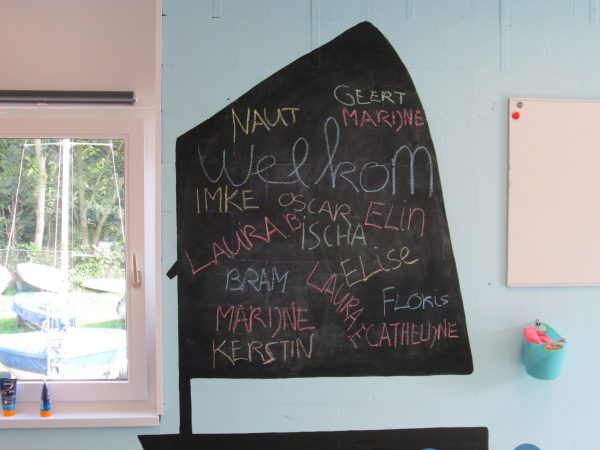 GEERT
NAUT
MARIJNE
Welkom
IMKE
OSCAR
ELIN
LAURA B
ISCHA
ELISE
BRAM
LAURA K
FLORIS
MARIJNE
CATHELIJNE
KERSTIN